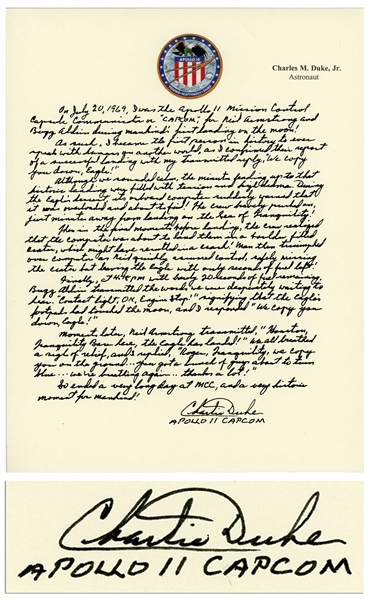 APOLLO 16
Charles M. Duke, Jr.
Astronaut
On July 20, 1969, I was the Apollo 11 Mission Control
Capsule Communicator or "CAPCOM," for Neil Armstrong and
Buzz Aldrin during mankind's first landing on the moon!
As such, I became the first person in history to ever
speak with humans on another world, as I confirmed their report
of a successful landing with my transmitted reply, "We copy
you down, Eagle!"
Although we sounded calm, the minutes leading up to that
historic landing were filled with tension and high drama. During
the Eagle's descent, its onboard computer suddenly warned that
it was overloaded and about to fail! The crew bravely pressed on,
just minutes away from landing on the Sea of Tranquility!
Then in the final moments before landing, the crew realized
that the computer was about to land them in a boulder filled
crater, which might have resulted in a crash! Man then triumphed
over computer as Neil quickly assumed control, safely missing
the crater but leaving the Eagle with only seconds of fuel left!
Finally, at 4:17 PM with barely 20 seconds of fuel remaining,
Buzz Aldrin transmitted the words we were desperately waiting to
hear. "Contact light, OK, Engine Stop!" signifying that the Eagle's
footpads had touched the moon, and I responded "We copy you
down, Eagle!"
Moments later, Neil Armstrong transmitted, "Houston,
Tranquility Base here, the Eagle has landed!" We all breathed
a sigh of relief, and I replied, "Roger, Tranquility, we copy
you on the ground... you got a bunch of guys about to turn
blue... we're breathing again... thanks a lot!"
So ended a very long day at MCC, and a very historic
moment for mankind!
Charlie Duke
APOLLO 11 CAPCOM
Charlie Duke
APOLLO 11 CAPCOM